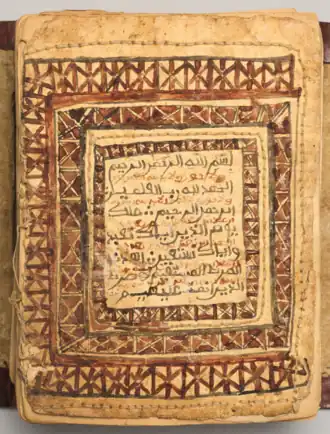 بسم الله الرحمن الرحيم
الحمد لله رب العلمين
الرحمن الرحيم ملك
يوم الدين اياك نعبد
واياك نستعين اهدنا
الصرط المستقيم صرط
الذين انعمت عليهم